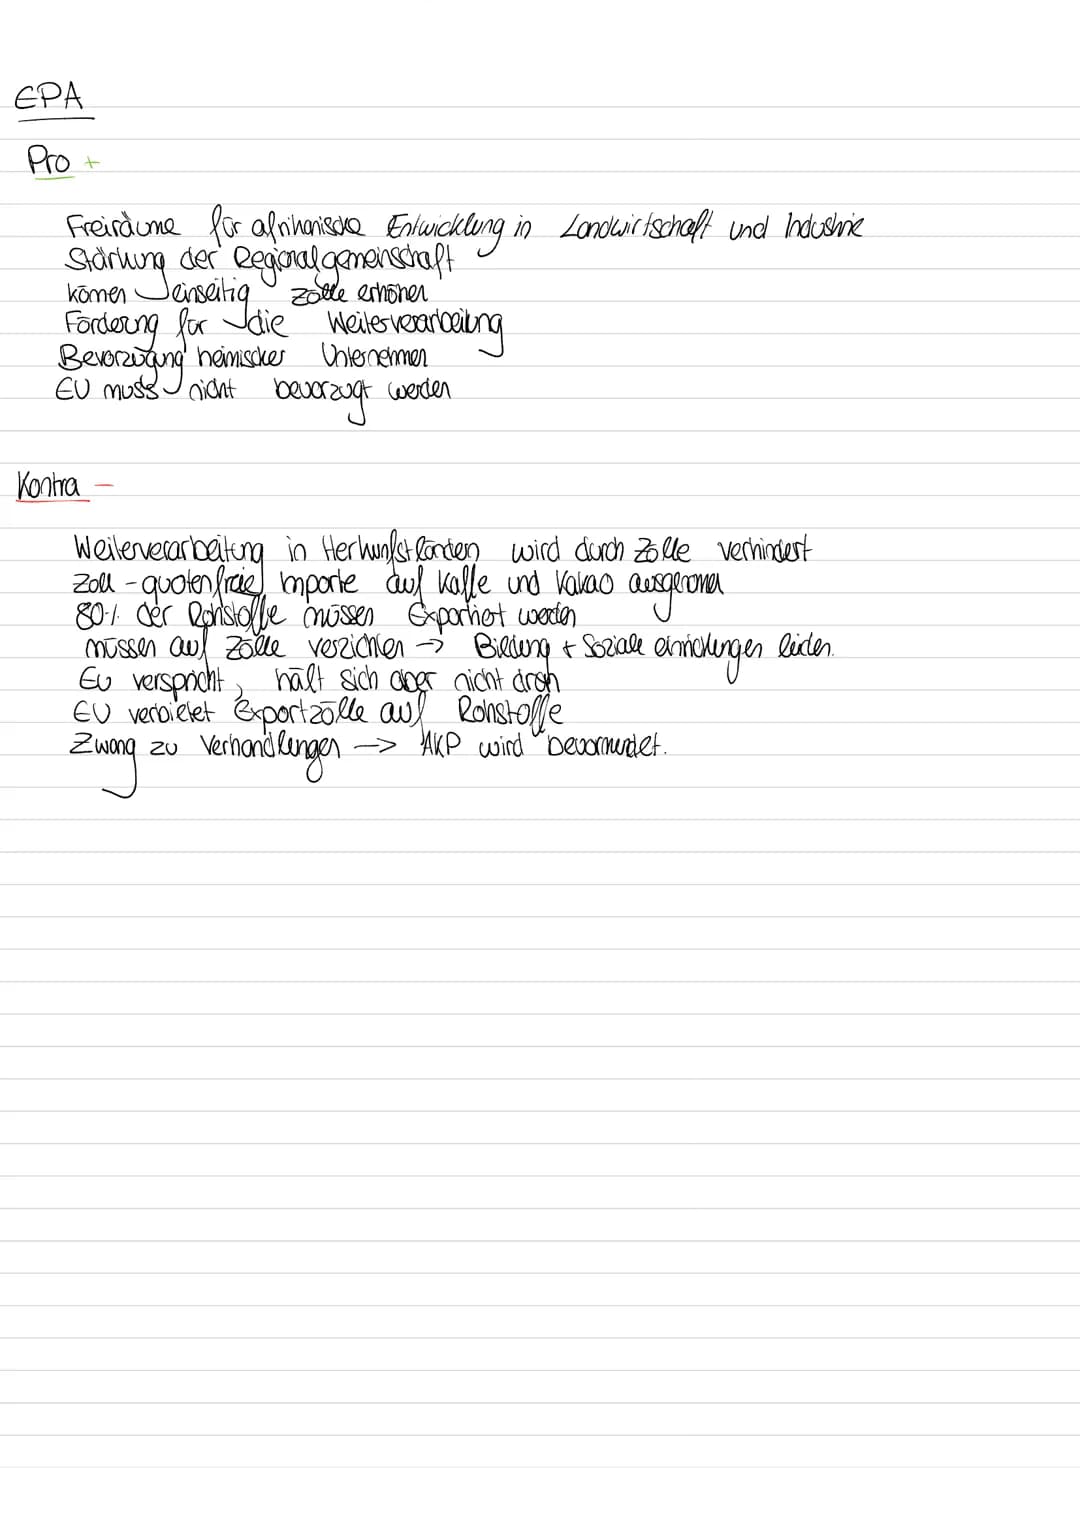 EPA
Pro +
Freiräume für afrikanische Entwicklung in Landwirtschaft und Industrie
Stärkung der Regionalgemeinschaft
können einseitig Zölle erhöhen
Förderung für die Weiterverarbeitung
Bevorzugung heimischer Unternehmen
EU muss nicht bevorzugt werden
Kontra -
Weiterverarbeitung in Herkunfstländen wird durch Zölle verhindert
Zoll - quotenfreie Importe auf Kaffe und Kakao ausgenomen
80% der Rohstoffe müssen Exportiert werden
müssen auf Zölle verzichten -> Bildung + Soziale einrichtungen leiden.
EU verspricht, hält sich aber nicht dran
EU verbietet Exportzölle auf Rohstoffe
Zwang zu Verhandlungen -> AKP wird bevormundet.